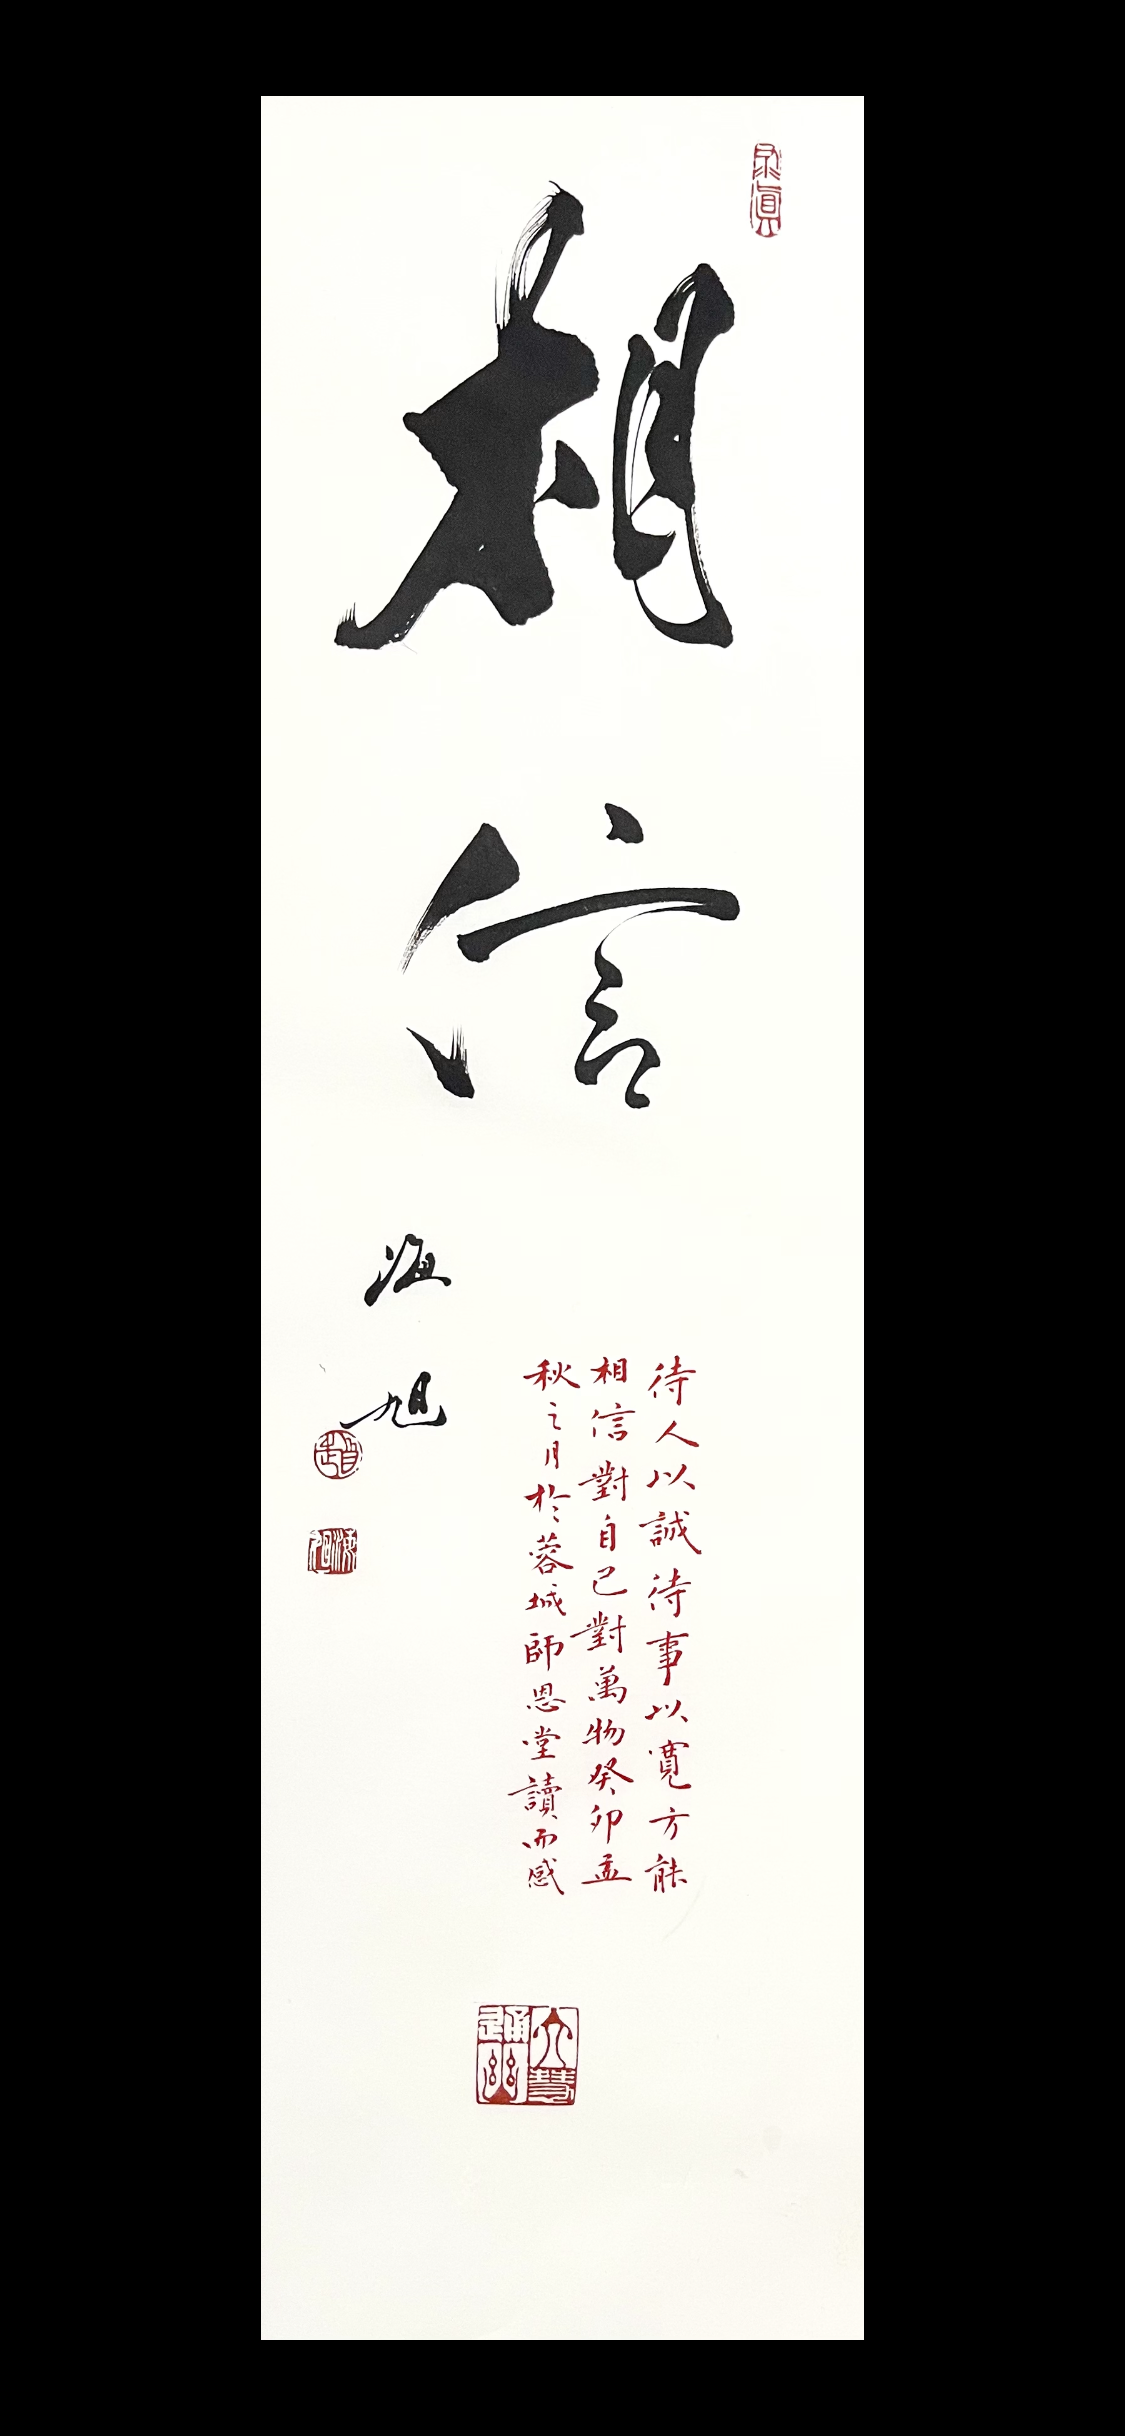 相信
待人以誠待事以寬方能
相信對自己對萬物癸卯孟
秋之月於蓉城師恩堂讀而感
海旭